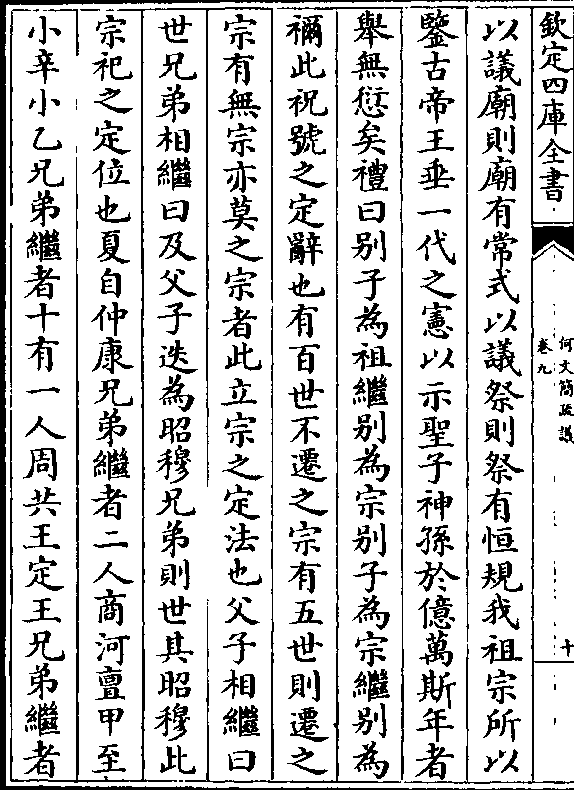 欽定四庫全書
何文簡疏議
卷九
十
以議廟則廟有常式以議祭則祭有恒規我祖宗所以
鑒古帝王垂一代之憲以示聖子神孫於億萬斯年者
舉無愆矣禮曰别子為祖繼别為宗别子為宗繼别為
禰此祝號之定辭也有百世不遷之宗有五世則遷之
宗有無宗亦莫之宗者此立宗之定法也父子相繼曰
世兄弟相繼曰及父子迭為昭穆兄弟則世其昭穆此
宗祀之定位也夏自仲康兄弟繼者二人商河亶甲至
小辛小乙兄弟繼者十有一人周共王定王兄弟繼者